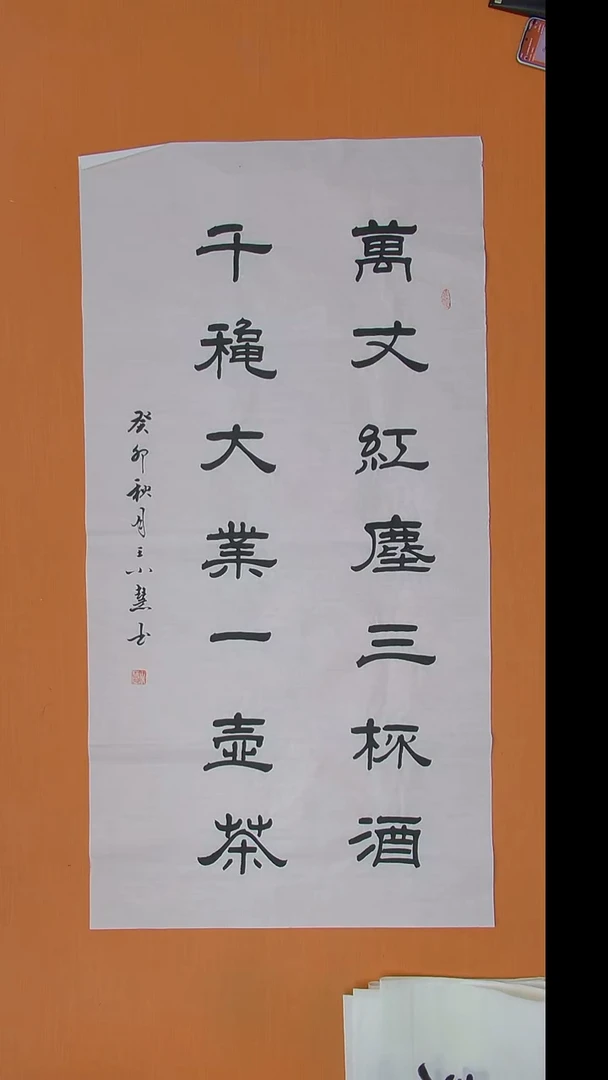 萬丈紅塵三杯酒
千龝大業一壺茶
癸卯秋月王小慧书